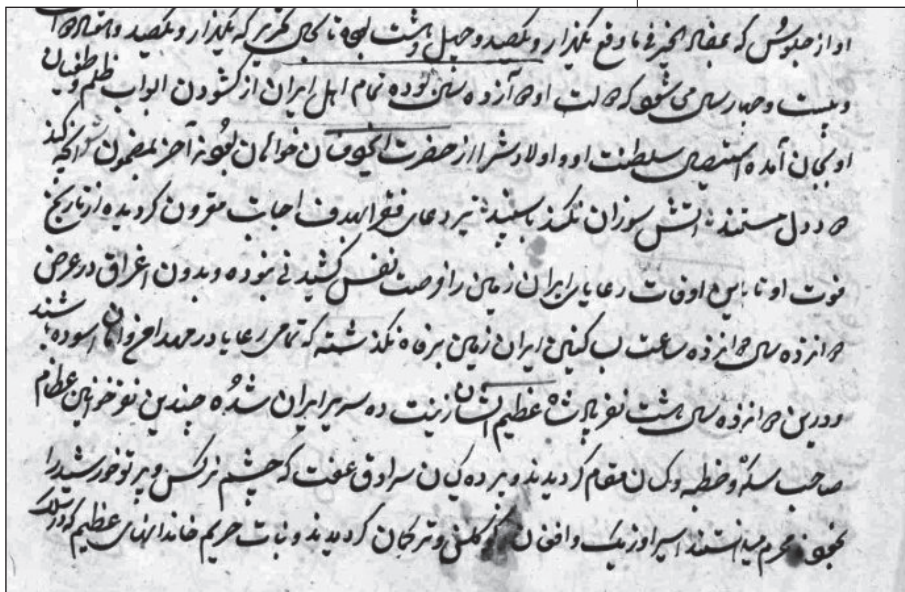 او از جلوس که بمضان الخیر فی ما وقع یکهزار و یکصد و چهل و هشت بوده تا بحال تحریر که یکهزار و یکصد و
و بیست و چهار سال می شود که دوازده سال بوده تمام اهل ایران از کشودن ابواب ظلم و طغیان
او بجان آمده استیصال سلطنت او و اولادش را از حضرت خواهان بودند آخر بمضمون آنچه کند
دود دل مستمند آتش سوزان نکند باسپند تیر دعای فقرا بهدف اجابت مقرون گردیده از تاریخ
فوت او تا باین اوقات رعایای ایران زمین را فرصت نفس کشیدنی نبوده و بدون اغراق در عرض
دوازده سال دوازده ساعت بساکنین ایران زمین برفاه نگذشته که تمامی رعایا در مهد امن و امان آسوده باشند
و درین دوازده سال هشت نفر پادشاه عظیم الشان زینت ده سریر ایران شده و چندین نفر خوانین عظام
صاحب سکه و خطبه و کان مقام گردیدند و پرده کیان سرادق عفت که چشم نرکس و پرتو خورشید را
بخود محرم میدانستند اسیر اوزبک و افغان و ترکمان گردیدند و بنات حریم خاندانهای عظیم که